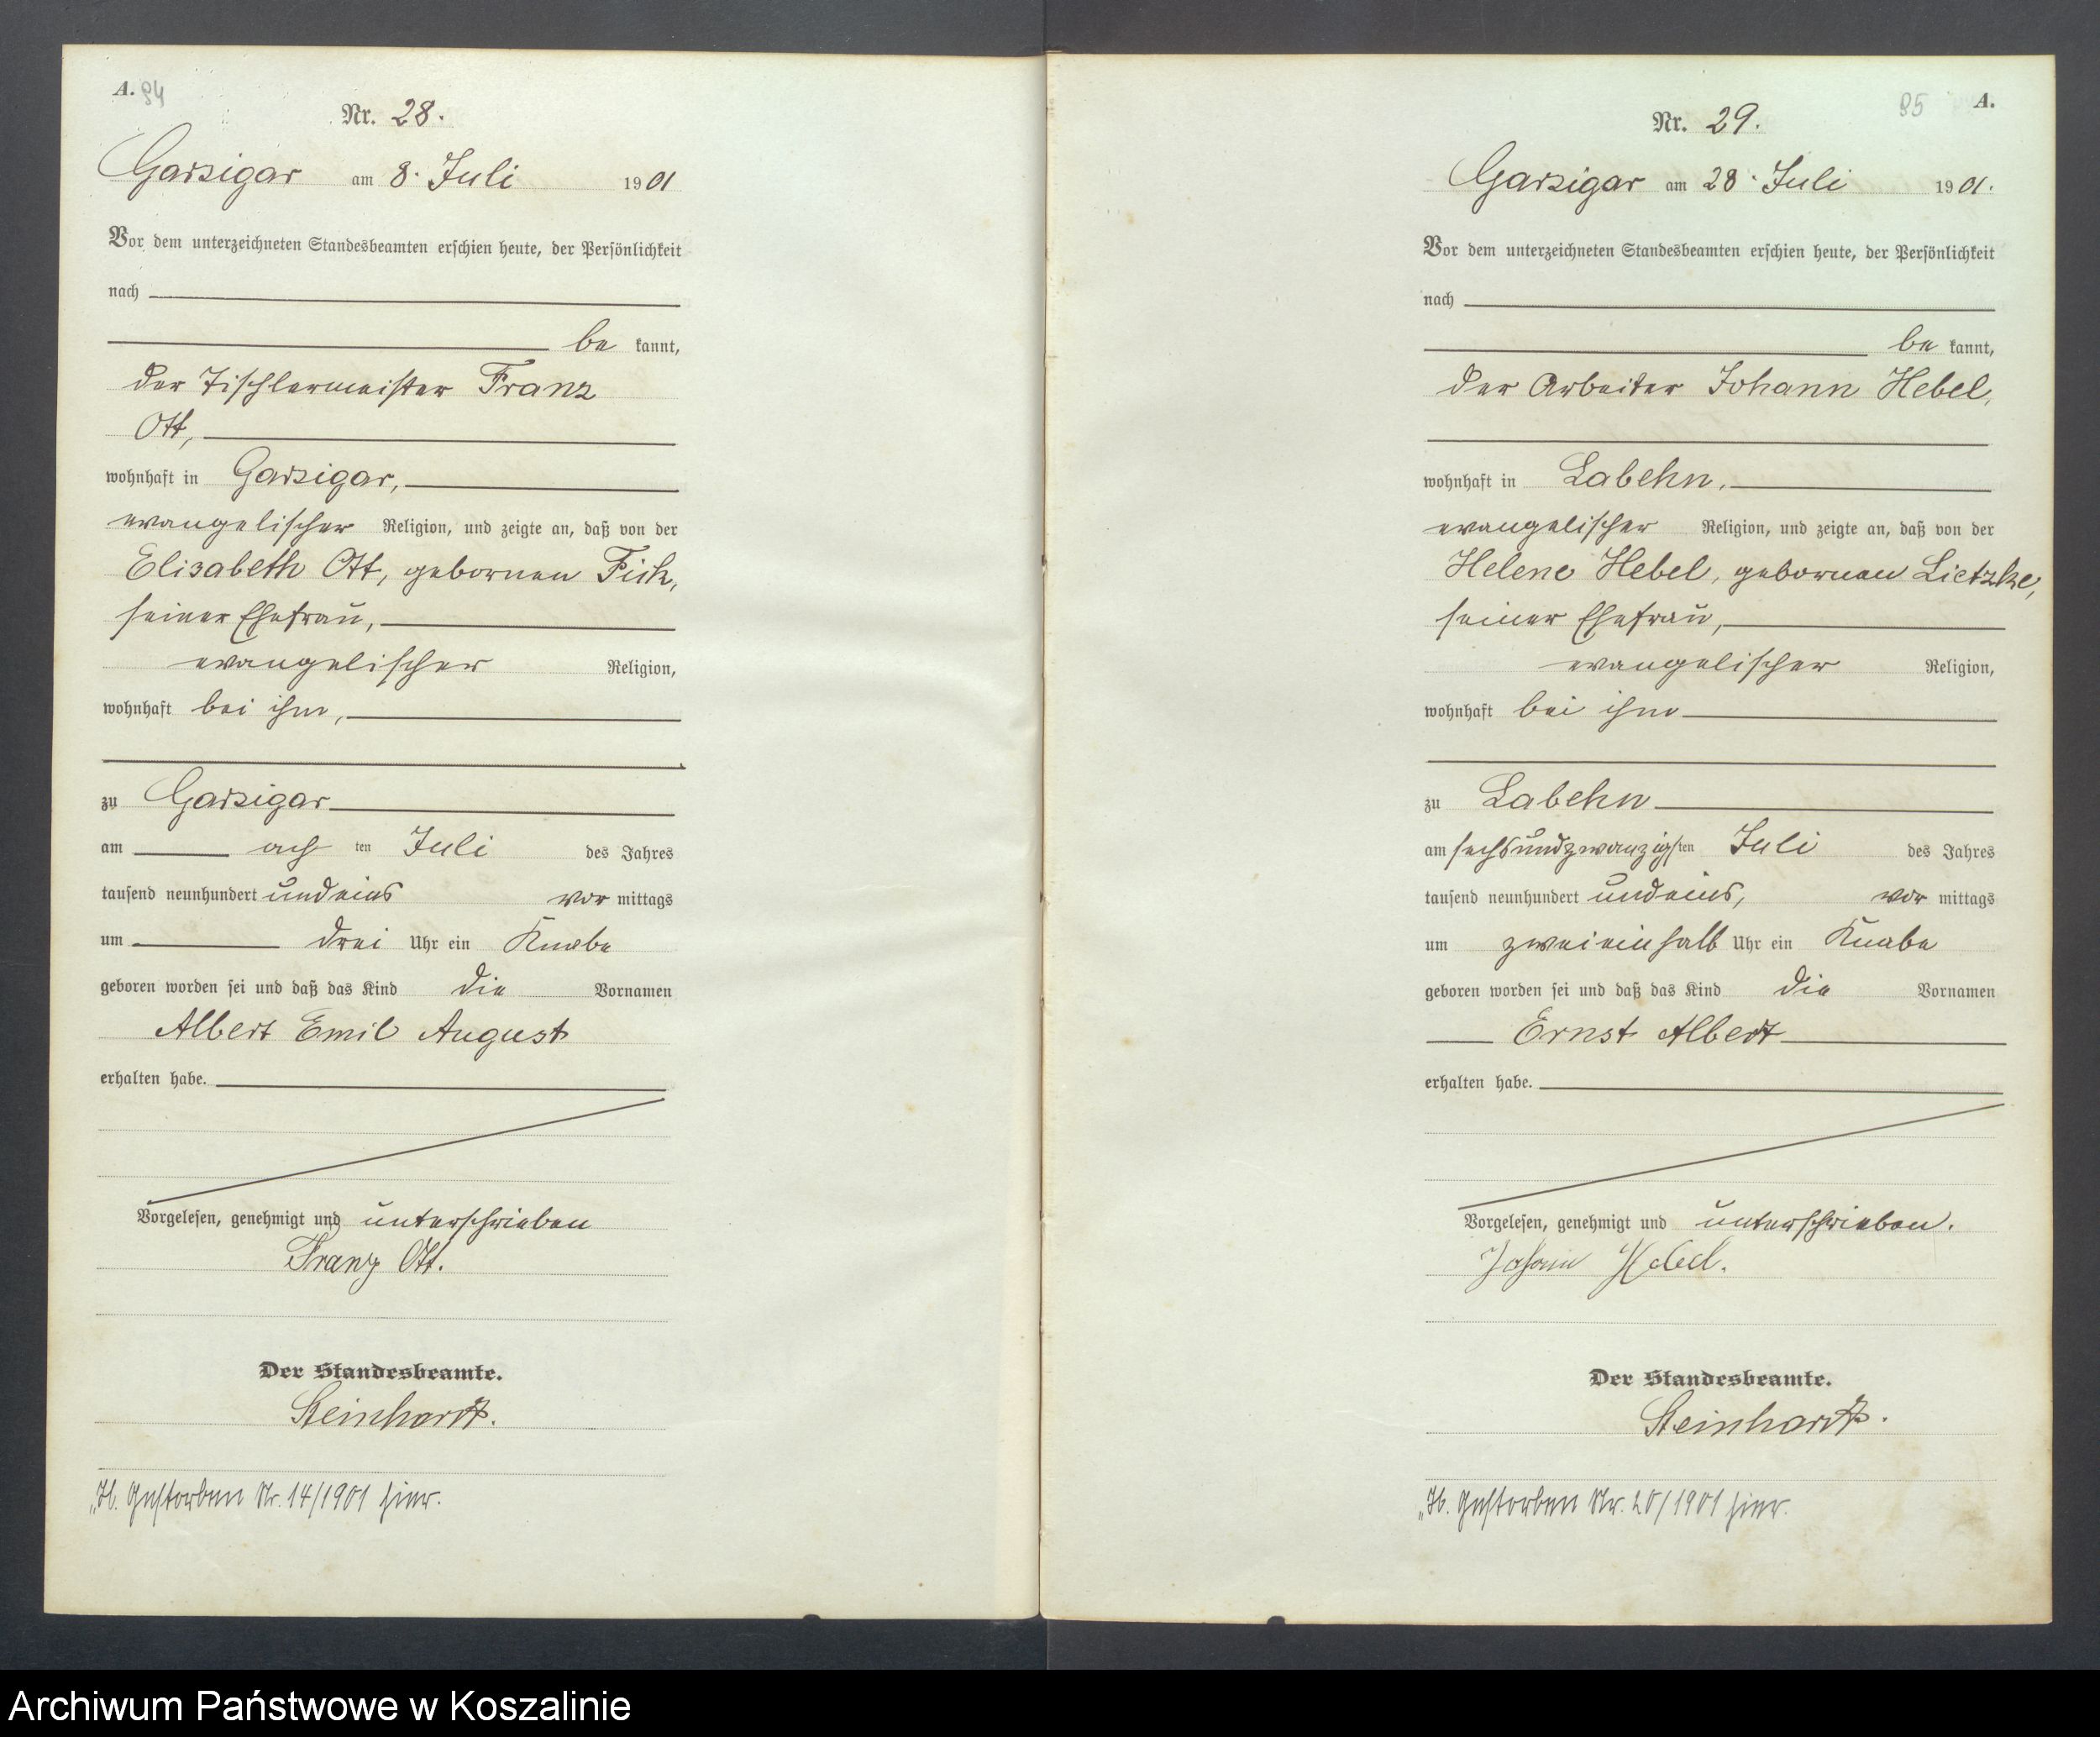 A. 94
Nr. 28.
Garzigar am 8. Juli 1901
Vor dem unterzeichneten Standesbeamten erschien heute, der Persönlichkeit
nach
be kannt,
der Tischlermeister Franz
Ott,
wohnhaft in Garzigar,
evangelischer Religion, und zeigte an, daß von der
Elisabeth Ott, gebornen Fich,
seiner Ehefrau,
evangelischer Religion,
wohnhaft bei ihm,
zu Garzigar
am ach ten Juli des Jahres
tausend neunhundert undeins vor mittags
um drei Uhr ein Knabe
geboren worden sei und daß das Kind die Vornamen
Albert Emil August
erhalten habe.
Vorgelesen, genehmigt und unterschrieben
Franz Ott.
Der Standesbeamte.
Steinhardt.
Gestorben Nr. 14/1901 hier.
95 A.
Nr. 29.
Garzigar am 28. Juli 1901.
Vor dem unterzeichneten Standesbeamten erschien heute, der Persönlichkeit
nach
be kannt,
der Arbeiter Johann Hebel,
wohnhaft in Labehn,
evangelischer Religion, und zeigte an, daß von der
Helene Hebel, gebornen Lietzke,
seiner Ehefrau,
evangelischer Religion,
wohnhaft bei ihm
zu Labehn
am sechsundzwanzigsten Juli des Jahres
tausend neunhundert undeins, vor mittags
um zweieinhalb Uhr ein Knabe
geboren worden sei und daß das Kind die Vornamen
Ernst Albert
erhalten habe.
Vorgelesen, genehmigt und unterschrieben.
Johann Hebel.
Der Standesbeamte.
Steinhardt.
Gestorben Nr. 20/1901 hier.
Archiwum Państwowe w Koszalinie